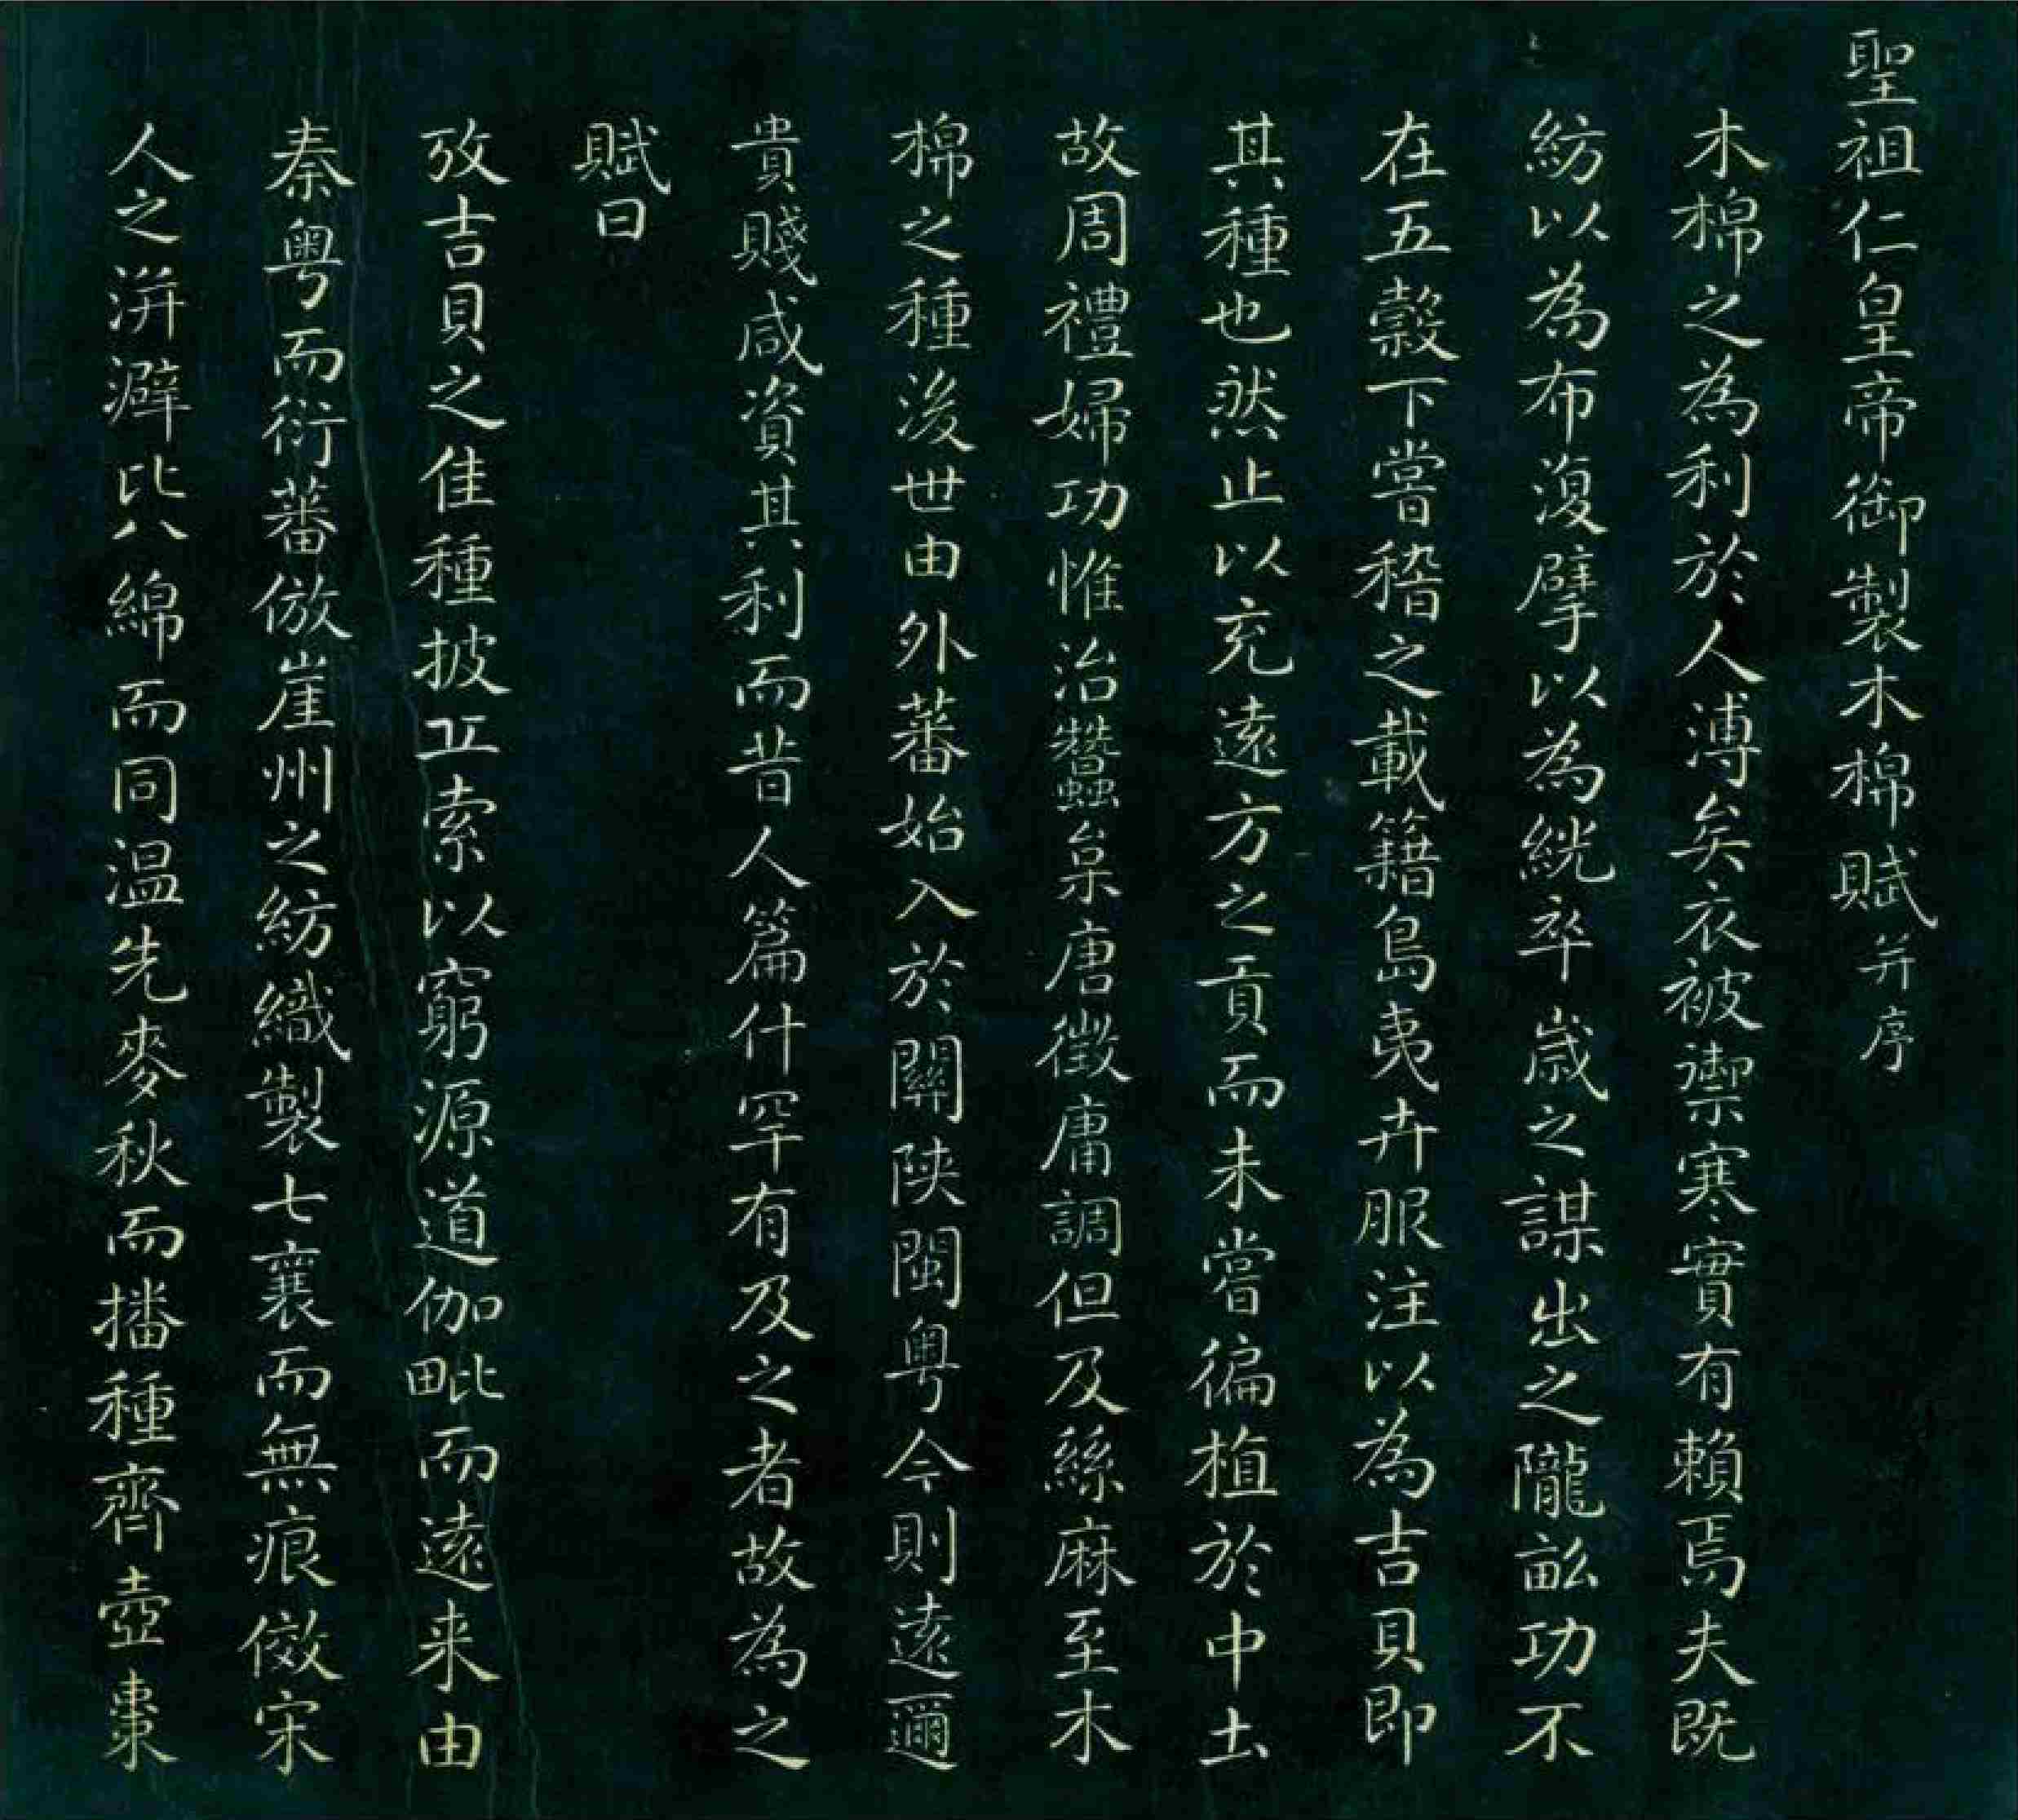 聖祖仁皇帝御製木棉賦并序
木棉之為利於人溥矣衣被禦寒實有賴焉夫既
紡以為布復擘以為絖卒歲之謀出之隴畝功不
在五穀下嘗稽之載籍島夷卉服注以為吉貝即
其種也然止以充遠方之貢而未嘗徧植於中土
故周禮婦功惟治蠶枲唐徵庸調但及絲麻至木
棉之種後世由外蕃始入於關陝閩粵今則遠邇
貴賤咸資其利而昔人篇什罕有及之者故為之
賦曰
攷吉貝之佳種披丘索以窮源道伽毗而遠来由
秦粵而衍蕃倣崖州之紡織製七襄而無痕傚宋
人之洴澼比八綿而同温先麥秋而播種齊壺棗